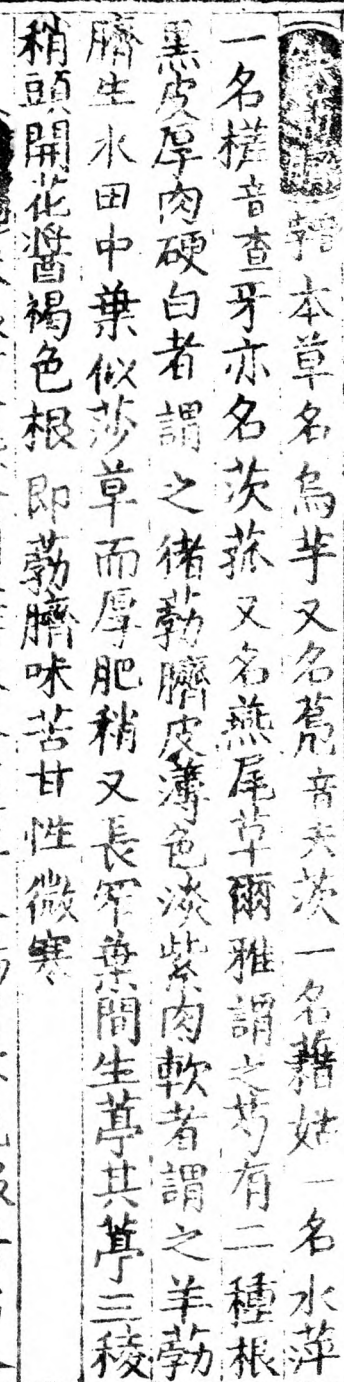 本草名烏芋又名鳧音夫茨一名藉姑一名水萍
一名槎音查牙亦名茨菰又名燕尾草爾雅謂之芍有二種根
黑皮厚肉硬白者謂之猪葧臍皮薄色淡紫肉軟者謂之羊葧
臍生水田中葉似莎草而厚肥稍又長窄葉間生葶其葶三稜
稍頭開花醬褐色根即葧臍味苦甘性微寒